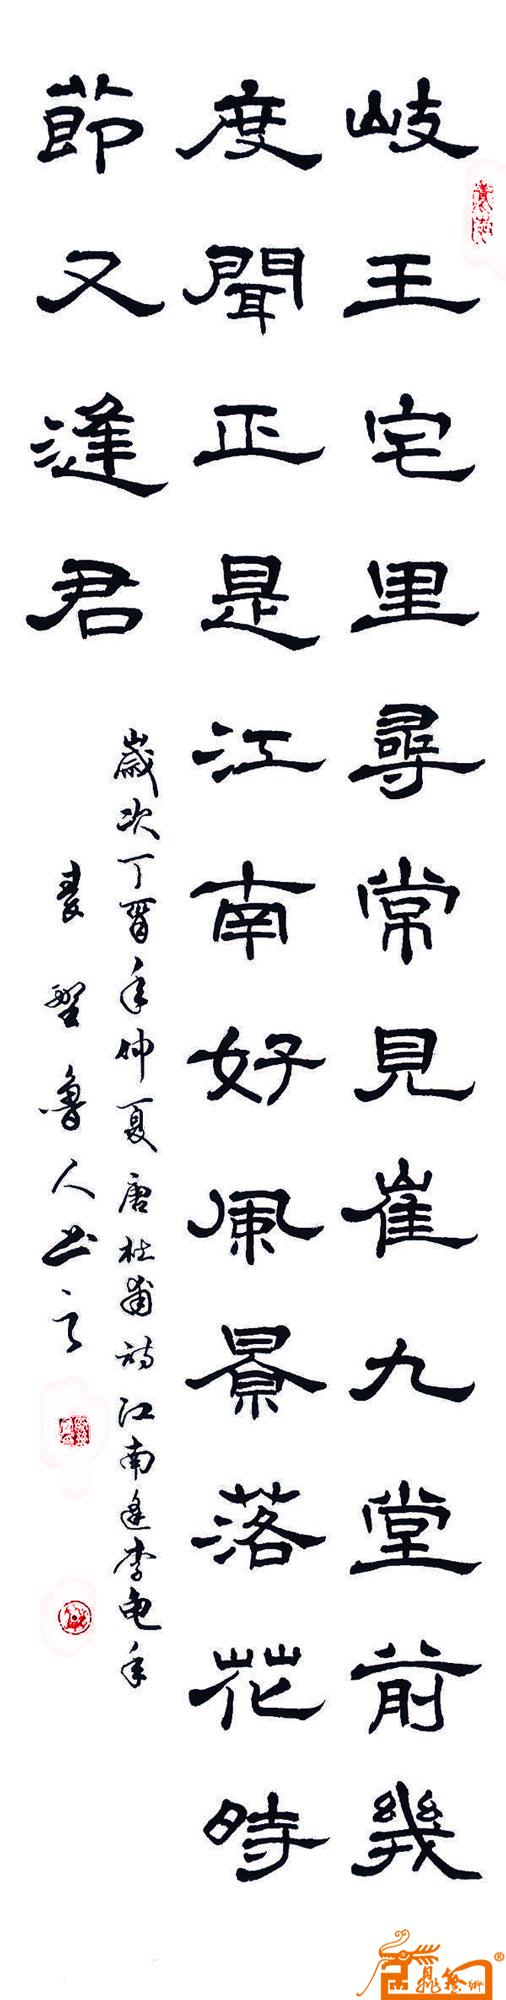 岐王宅里尋常見崔九堂前幾
度聞正是江南好風景落花時
節又逢君
歲次丁酉年仲夏唐杜甫詩江南逢李龟年
魯人书之